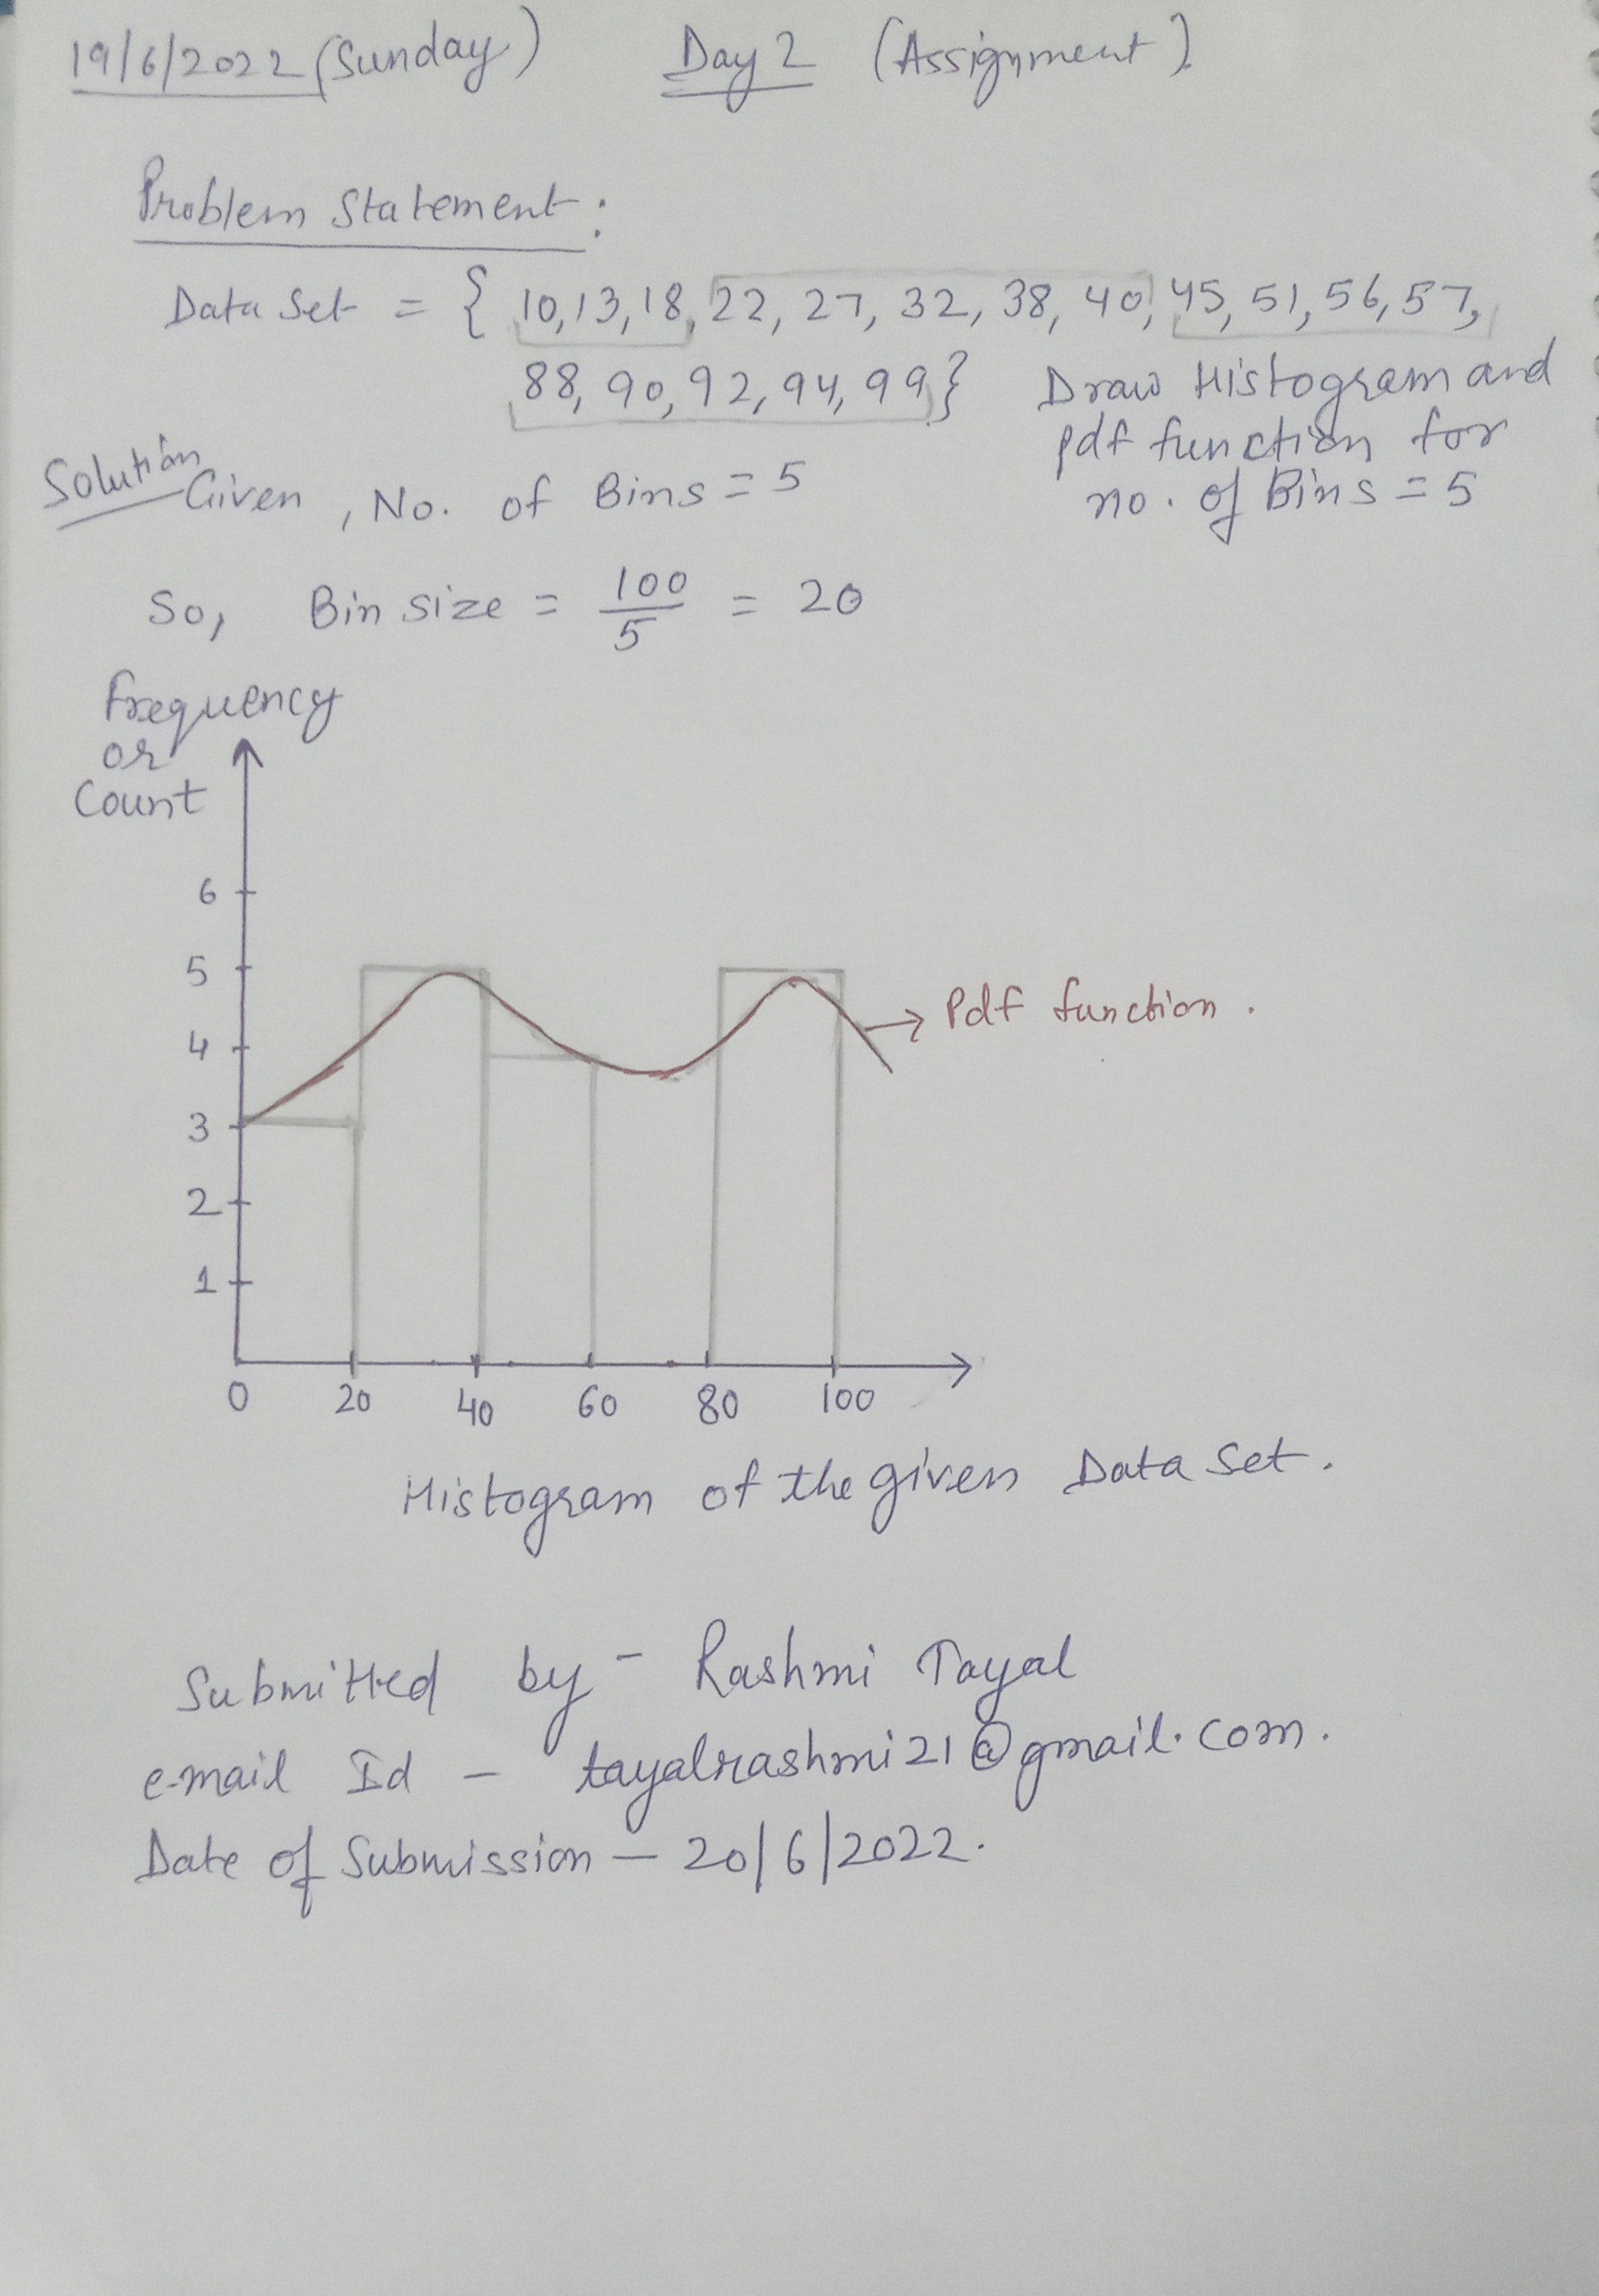 19/6/2022 (Sunday) Day 2 (Assignment)
Problem Statement:
Data Set = { 10, 13, 18, 22, 27, 32, 38, 40, 45, 51, 56, 57,
88, 90, 92, 94, 99} Draw Histogram and
pdf function for
no. of Bins = 5
Solution
Given, No. of Bins = 5
So, Bin size = 100/5 = 20
Frequency
or
Count
6
5
4
3
2
1
0 20 40 60 80 100
→ Pdf function.
Histogram of the given Data Set.
Submitted by - Rashmi Tayal
e-mail Id - tayalrashmi21@gmail.com.
Date of Submission - 20/6/2022.